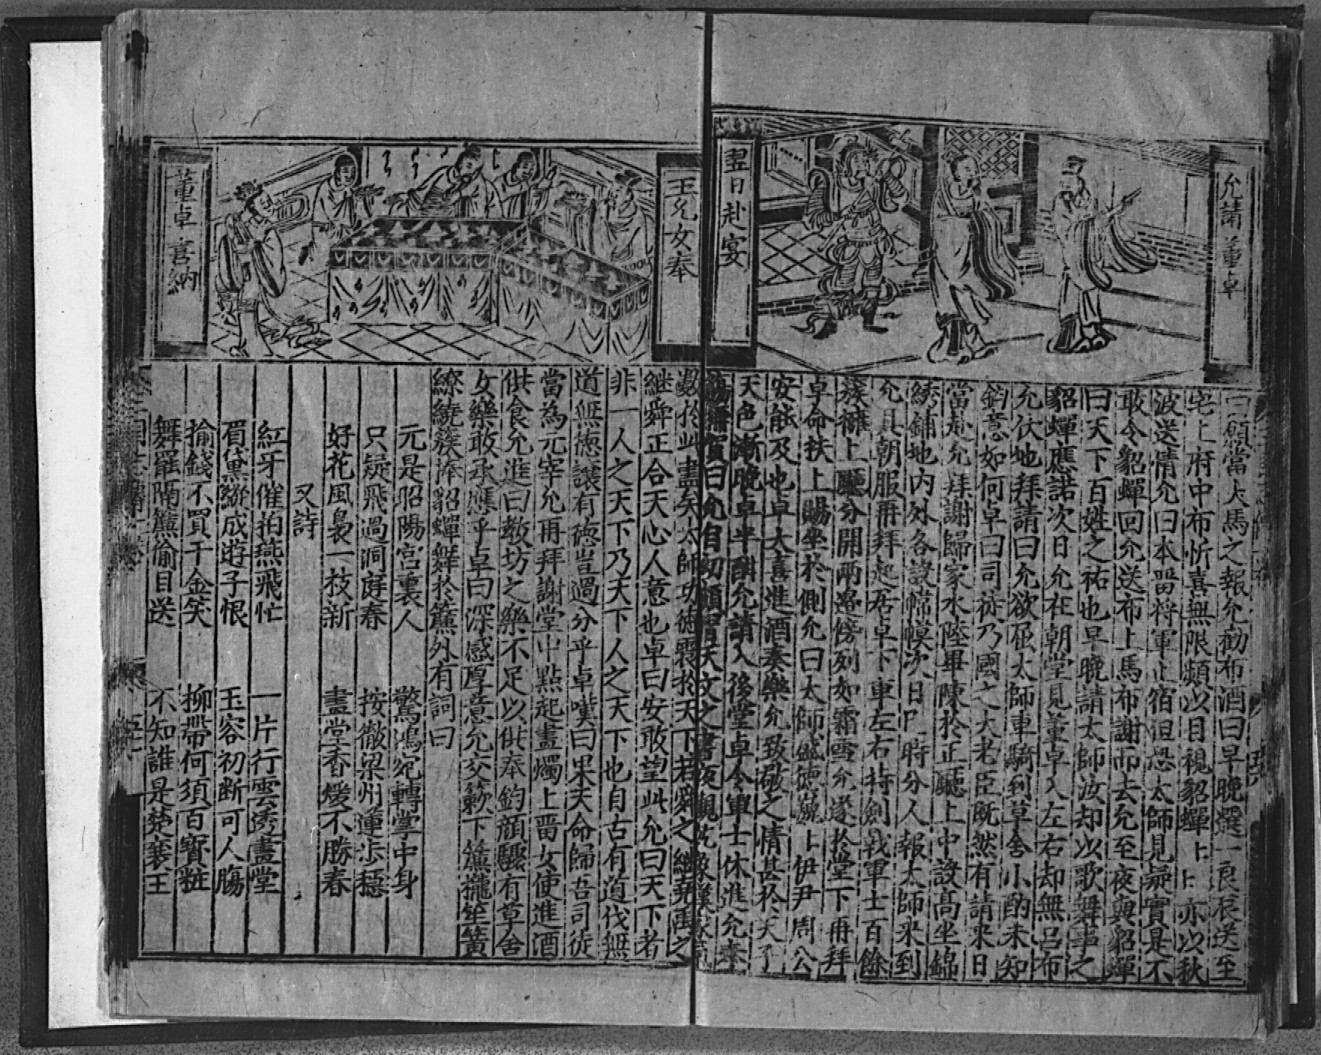 允請董卓
翌日赴宴
曰願當犬馬之報允勸布酒曰早晚選一良辰送至
宅上府中布忻喜無限頻以目視貂蟬上亦以秋
波送情允曰本留将軍止宿但恐太師見疑實是不
敢令貂蟬回允送布上馬布謝而去允至夜與貂蟬
曰天下百姓之祐也早晚請太師汝却以歌舞事之
貂蟬應諾次日允在朝堂見董卓入左右却無吕布
允伏地拜請曰允欲屈太師車騎到草舍小酌未知
鈞意如何卓曰司徒乃國之大老臣既然有請来日
當赴允拜謝歸家水陸畢陳於正廳上中設髙坐錦
綉鋪地内外各設幃幙次日巳時分人報太師来到
允具朝服再拜起居卓下車左右持劍戟軍士百餘
簇擁上廳分開兩邊傍列如霜雪允遂於堂下再拜
卓命扶上賜坐於側允曰太師盛徳巍上伊尹周公
安能及也卓大喜進酒奏樂允致敬之情甚於天子
天色漸晚卓半酣允請入後堂卓令軍士休進允奉
觴稱賀曰允自幼頗習天文之書夜觀乾象漢家氣
王允女奉
董卓喜納
數於此盡矣太師功徳喪於天下若舜之継堯禹之
継舜正合天心人意也卓曰安敢望此允曰天下者
非一人之天下乃天下人之天下也自古有道伐無
道無徳譲有徳豈過分乎卓嘆曰果天命歸吾司徒
當為元宰允再拜謝堂中點起畫燭上畱女使進酒
供食允進曰教坊之樂不足以供奉鈞顔驟有草舍
女樂敢承應乎卓曰深感厚意允交簌下簾攏笙簧
繚繞簇捧貂蟬舞於簾外有詞曰
元是昭陽宫裏人 驚鴻宛轉掌中身
只疑飛過洞庭春 按徹梁州蓮步穩
好花風裊一枝新 畫堂香煖不勝春
又詩
紅牙催拍燕飛忙 一片行雲透畫堂
眉黛䘐成遊子恨 玉容初断可人膓
揄錢不買千金笑 柳帶何須百寳粧
舞罷隔簾偷目送 不知誰是楚襄王